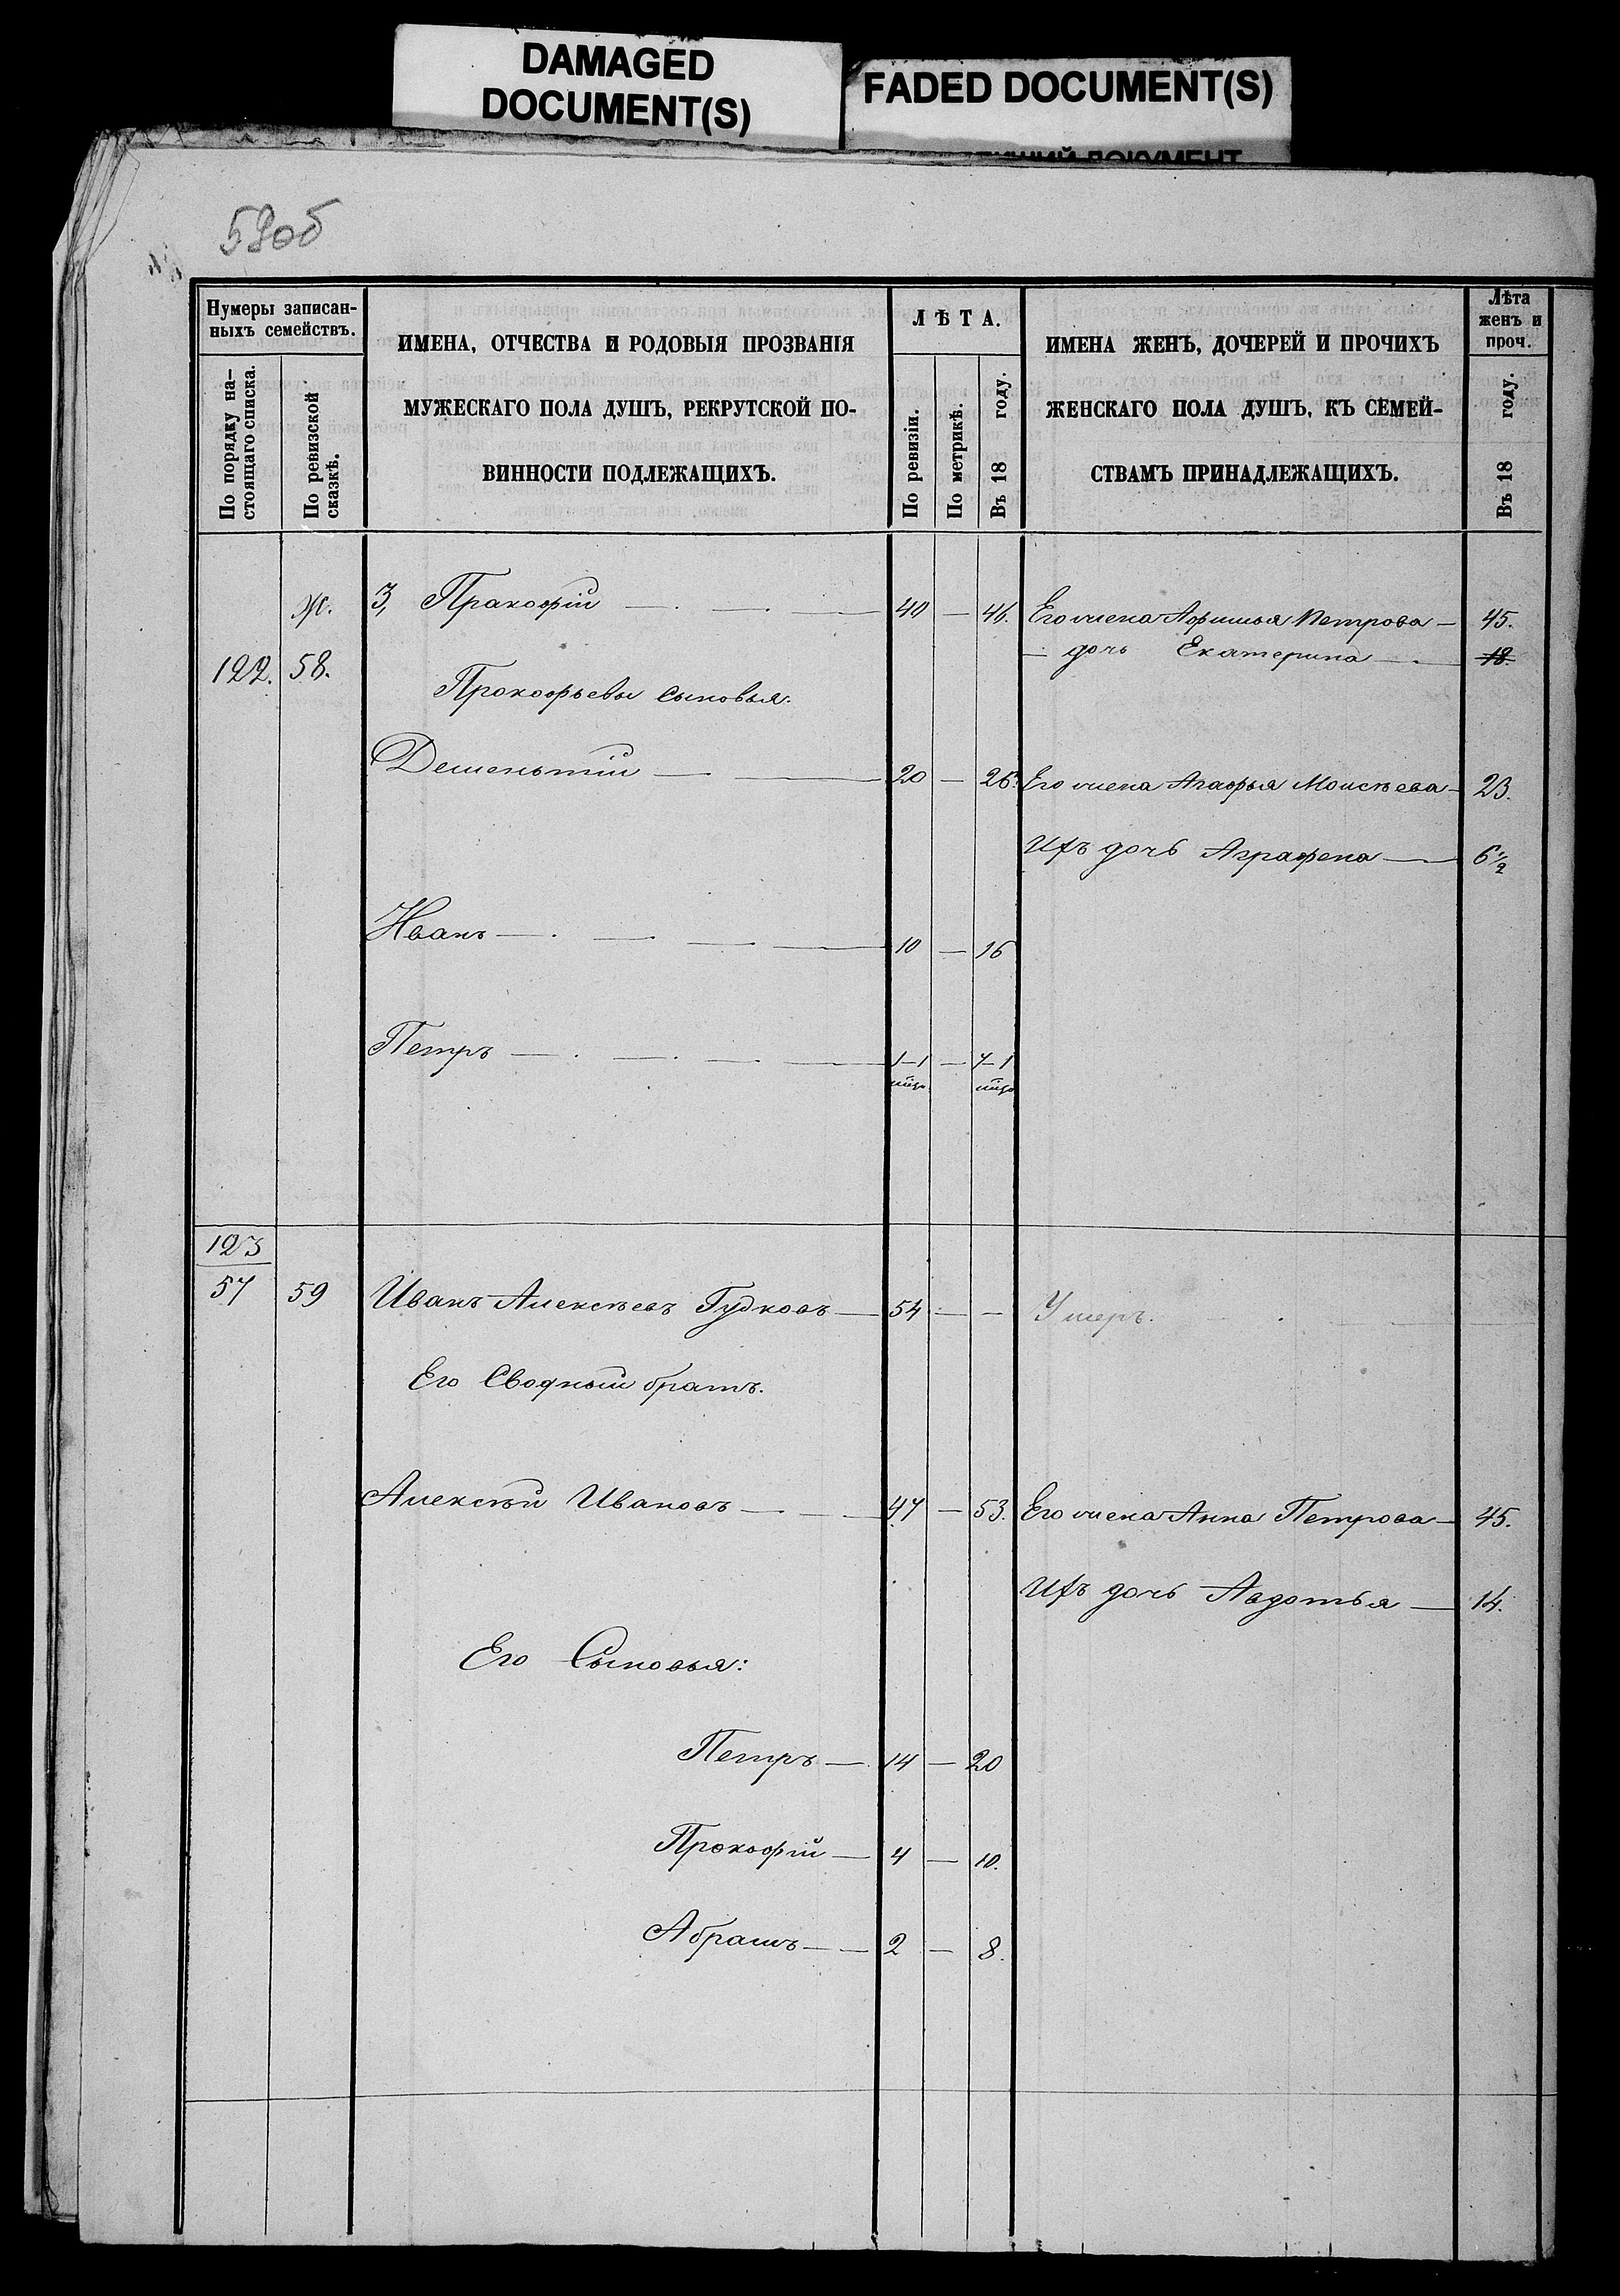 DAMAGED
DOCUMENT(S)
FADED DOCUMENT(S)
ДОКУМЕНТ
59об
Нумеры записан-
ныхъ семействъ.
По порядку на-
стоящаго списка.
По ревизской
сказкѣ.
ИМЕНА, ОТЧЕСТВА И РОДОВЫЯ ПРОЗВАНІЯ
МУЖЕСКАГО ПОЛА ДУШЪ, РЕКРУТСКОЙ ПО-
ВИННОСТИ ПОДЛЕЖАЩИХЪ.
ЛѢТА.
По ревизіи.
По метрикѣ.
Въ 18 году.
ИМЕНА ЖЕНЪ, ДОЧЕРЕЙ И ПРОЧИХЪ
ЖЕНСКАГО ПОЛА ДУШЪ, КЪ СЕМЕЙ-
СТВАМЪ ПРИНАДЛЕЖАЩИХЪ.
Лѣта
женъ и
проч.
Въ 18 году.
3, Пракофій — 40 — 46. Его жена Афимья Петрова — 45.
дочь Екатерина — 18.
122. 58.
Прокофьевы сыновья.
Дементій — 20 — 26. Его жена Агафья Моисѣева — 23.
Ихъ дочь Аграфена — 6 1/2
Иванъ — 10 — 16
Петръ — 1-1 — 7-1
123
57 59 Иванъ Алексѣевъ Гудковъ — 54 — — Умеръ.
Его Сводный братъ.
Алексѣй Ивановъ — 47 — 53. Его жена Анна Петрова — 45.
Ихъ дочь Авдотья — 14.
Его Сыновья:
Петръ — 14 — 20
Прокофій — 4 — 10.
Абрамъ — 2 — 8.